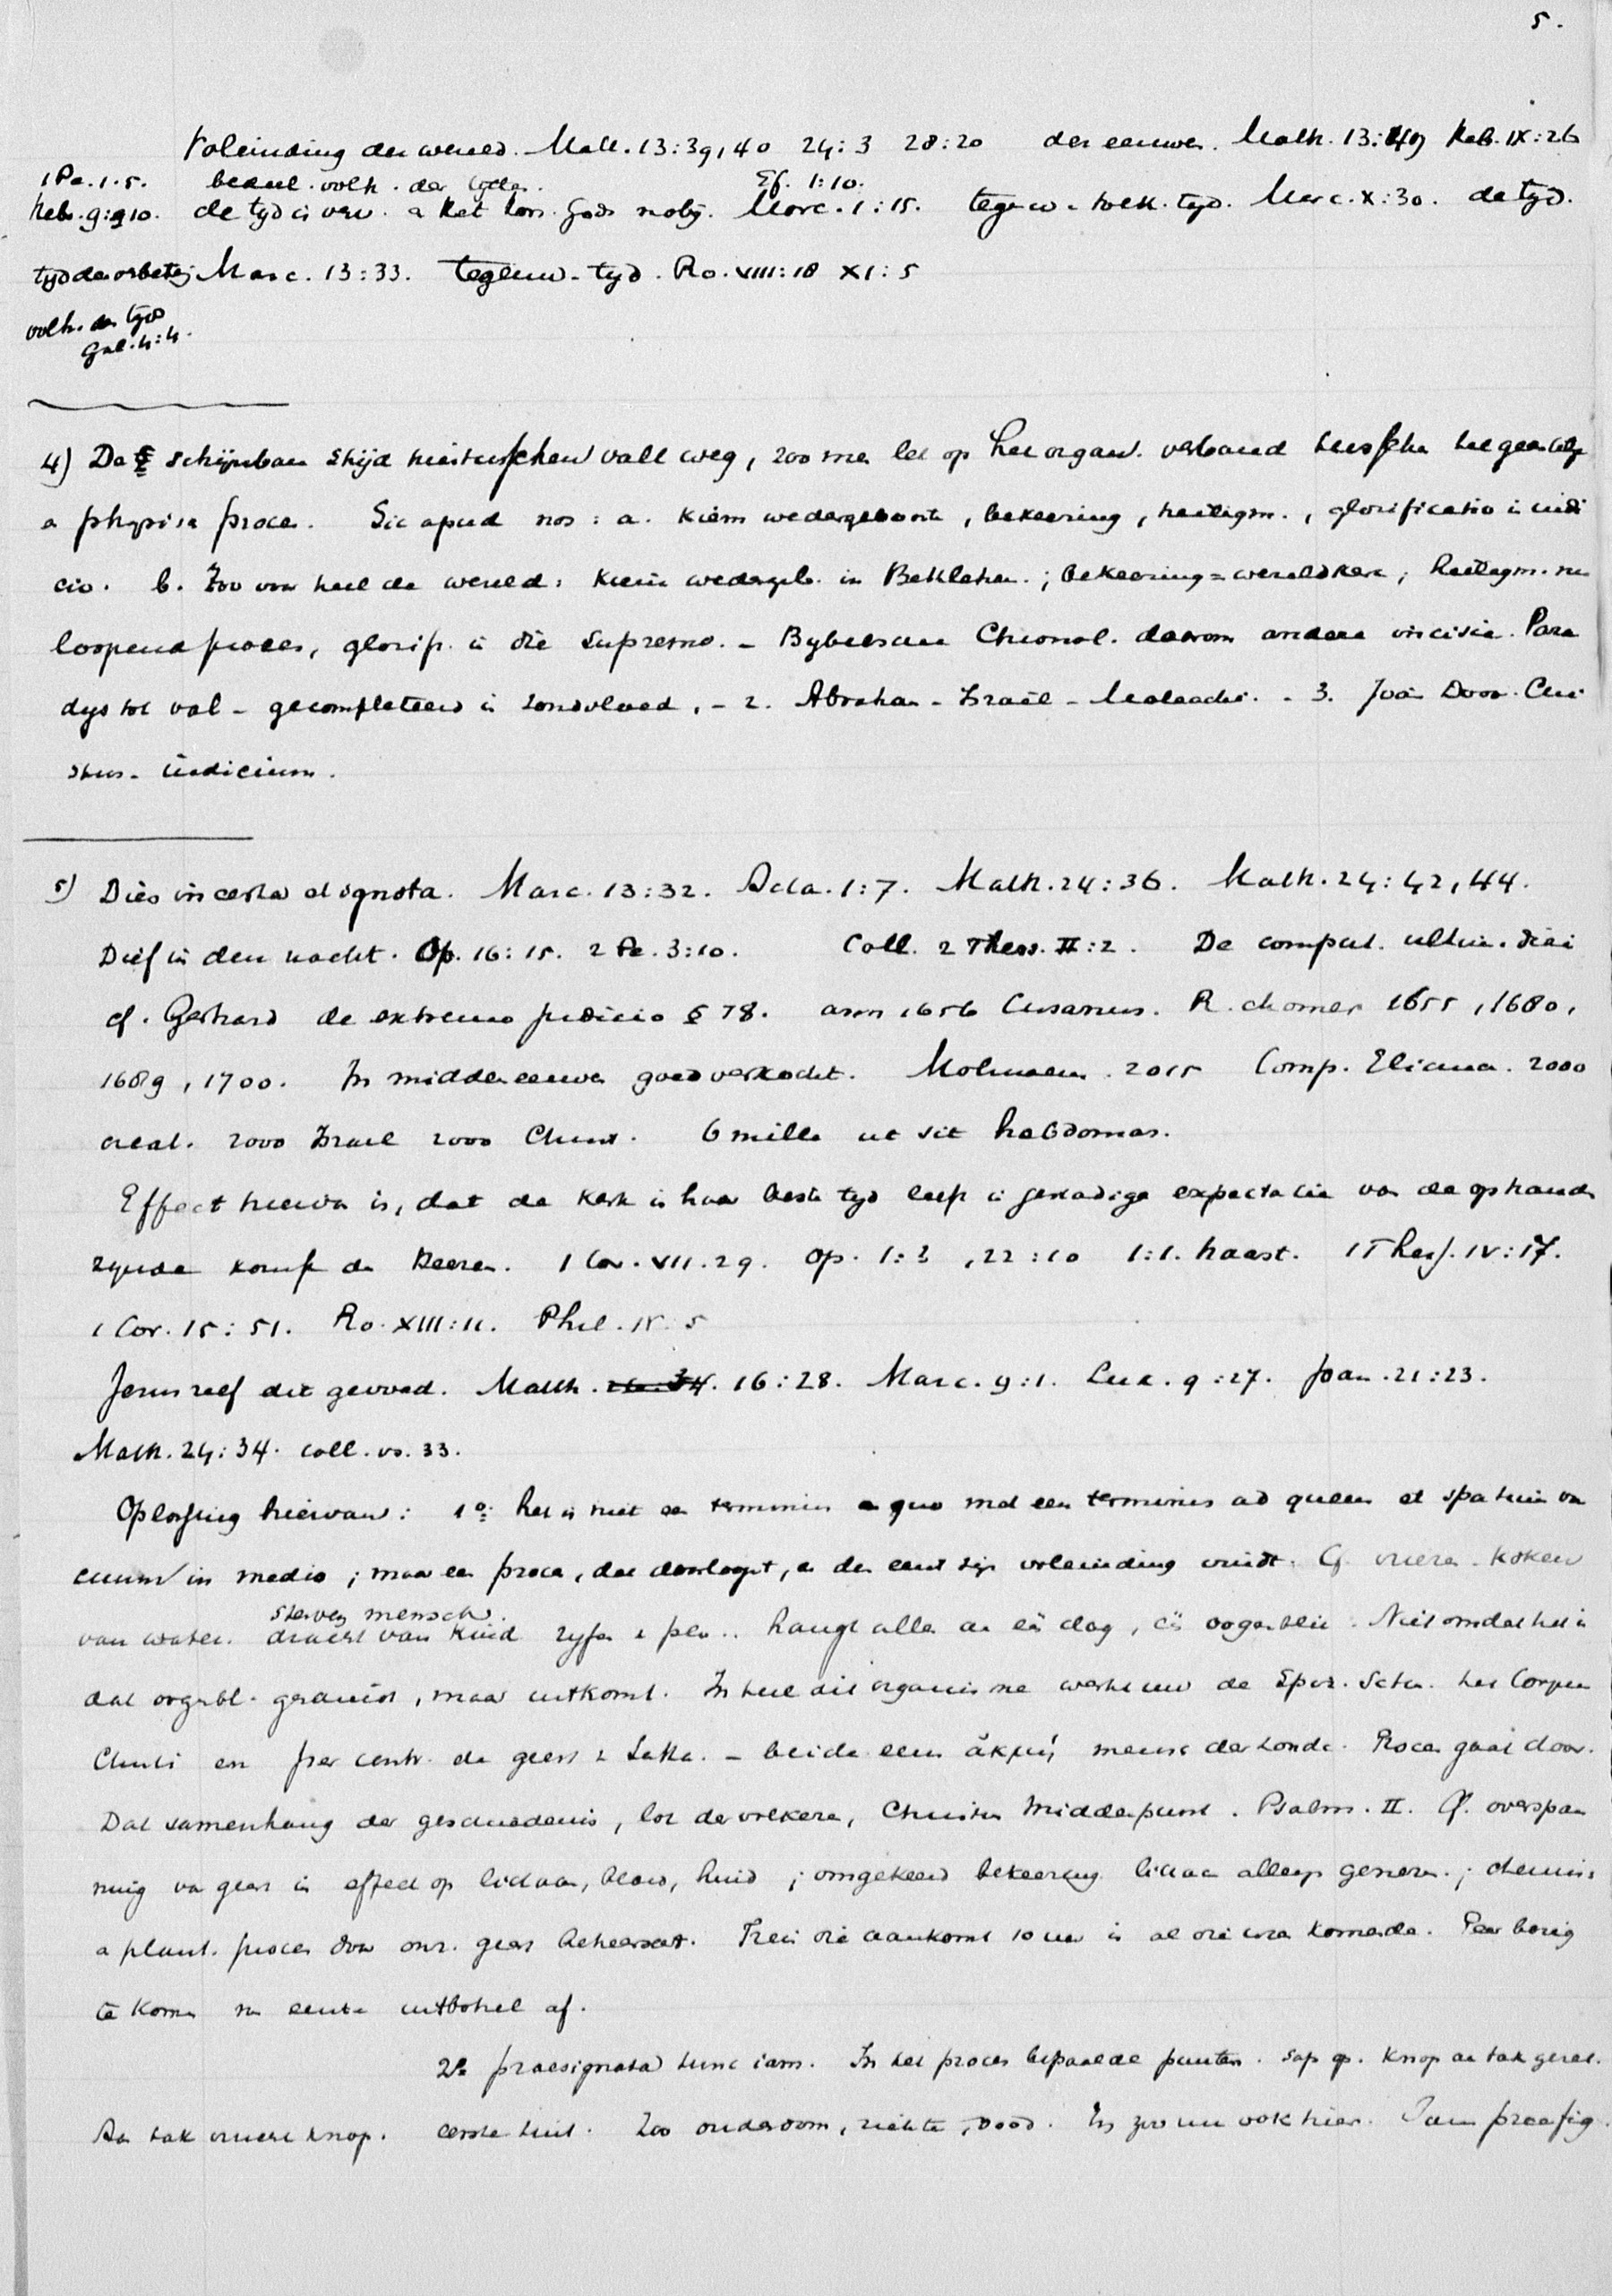 5.
Voleinding der wereld. Matt. 13:39,40 24:3 28:20 der eeuwen. Math. 13:49 Heb. IX:26
1 Pe. 1.5. bedeel. volh. der tyden. Ef. 1:10.
Hebr. 9:9 10. de tyd is verv. a het kon. Gods naby. Marc. 1:15. tegenw. toek. tyd. Marc. X:30. de tyd.
tyd der verbeterg Marc. 13:33. Tegenw. tyd. Ro. VIII:18 XI:5
volh. der tyd
Gal. 4:4.
4) De schijnbare strijd hiertusschen valt weg, zoo men let op het organ. verband tusschen het geestelyk
a physisch proces. Sic apud nos: a. Kiem wedergeboorte, bekeering, heiligm., glorificatio in iudi
cio. b. Zoo voor heel de wereld: Kiem wedergeb. in Bethlehem.; bekeering = wereldkerk; heiligm. nu
loopend proces, glorif. in die supremo. - Bybelsche Chronol. daarom andere incisie. Para
dys tot val - gecompleteerd in zondvloed. - 2. Abraham - Israël - Maleachi. - 3. Joh. Doop. Chri
stus - iudicium.
5) Dies incerta et ignota. Marc. 13:32. Acta. 1:7. Math. 24:36. Math. 24:42,44.
Dief in den nacht. Op. 16:15. 2 Pe. 3:10. Coll. 2 Thess. II:2. De comput. ultim. diei
cf. Gerhard de extremo judicio § 78. ann 1656 Cusanus. R. chomer 1655, 1680,
1689, 1700. In middeleeuwen goed verkocht. 2015 Comp. Eliana. 2000
creat. 2000 Israel 2000 Christ. 6 mille ut sit hebdomas.
Effect hiervan is, dat de Kerk in haar beste tyd leeft in gestadige expectatie van de ophanden
zynde komst des Heeren. 1 Cor. VII.29. Op. 1:3, 22:10 1:1. haast. 1 Thess. IV:17.
1 Cor. 15:51. Ro. XIII:11. Phil. IV:5
Jezus zelf dit gevoed. Matth. 16:28. Marc. 9:1. Luc. 9:27. Joan. 21:23.
Math. 24:34. coll. vs. 33.
Oplossing hiervan: 1o. het is niet een terminus a quo met een terminus ad quem et spatium va
cuum in medio; maar een proces, dat doorloopt, en dan eens zijn voleinding vindt. Cf. vriezen. Koken
van water. stervey mensch. dracht van kind hangt alles aan één dag, één oogenblik. Niet omdat het in
dat oogenbl. geschiedt, maar uitkomt. In heel dit organisme werkt nu de Spir. Sctu. het Corpus
Christi en per contr. de geest v Satha. - beide een ἀκμή mensch der zonde. Proces gaat door.
Dat samenhang der geschiedenis, lot der volkeren, Christus Middelpunt. Psalm. II. Cf. overspan
ning van geest in effect op lichaam, bloed, huid; omgekeerd bekeering lichaam allengs genezen.; chemis
a plant. proces door onz. geest beheerscht. Trein die aankomt 10 uur is al drie uren komende. Peer bezig
te komen na eerste uitbottel af.
2o praesignata tunc iam. In het proces bepaalde punten. sap op. Knop aan tak gezet.
Aan tak vruchtknop. eerste huil. Zoo ouderdom, ziekte, dood. En zoo nu ook hier. Jam praefig.